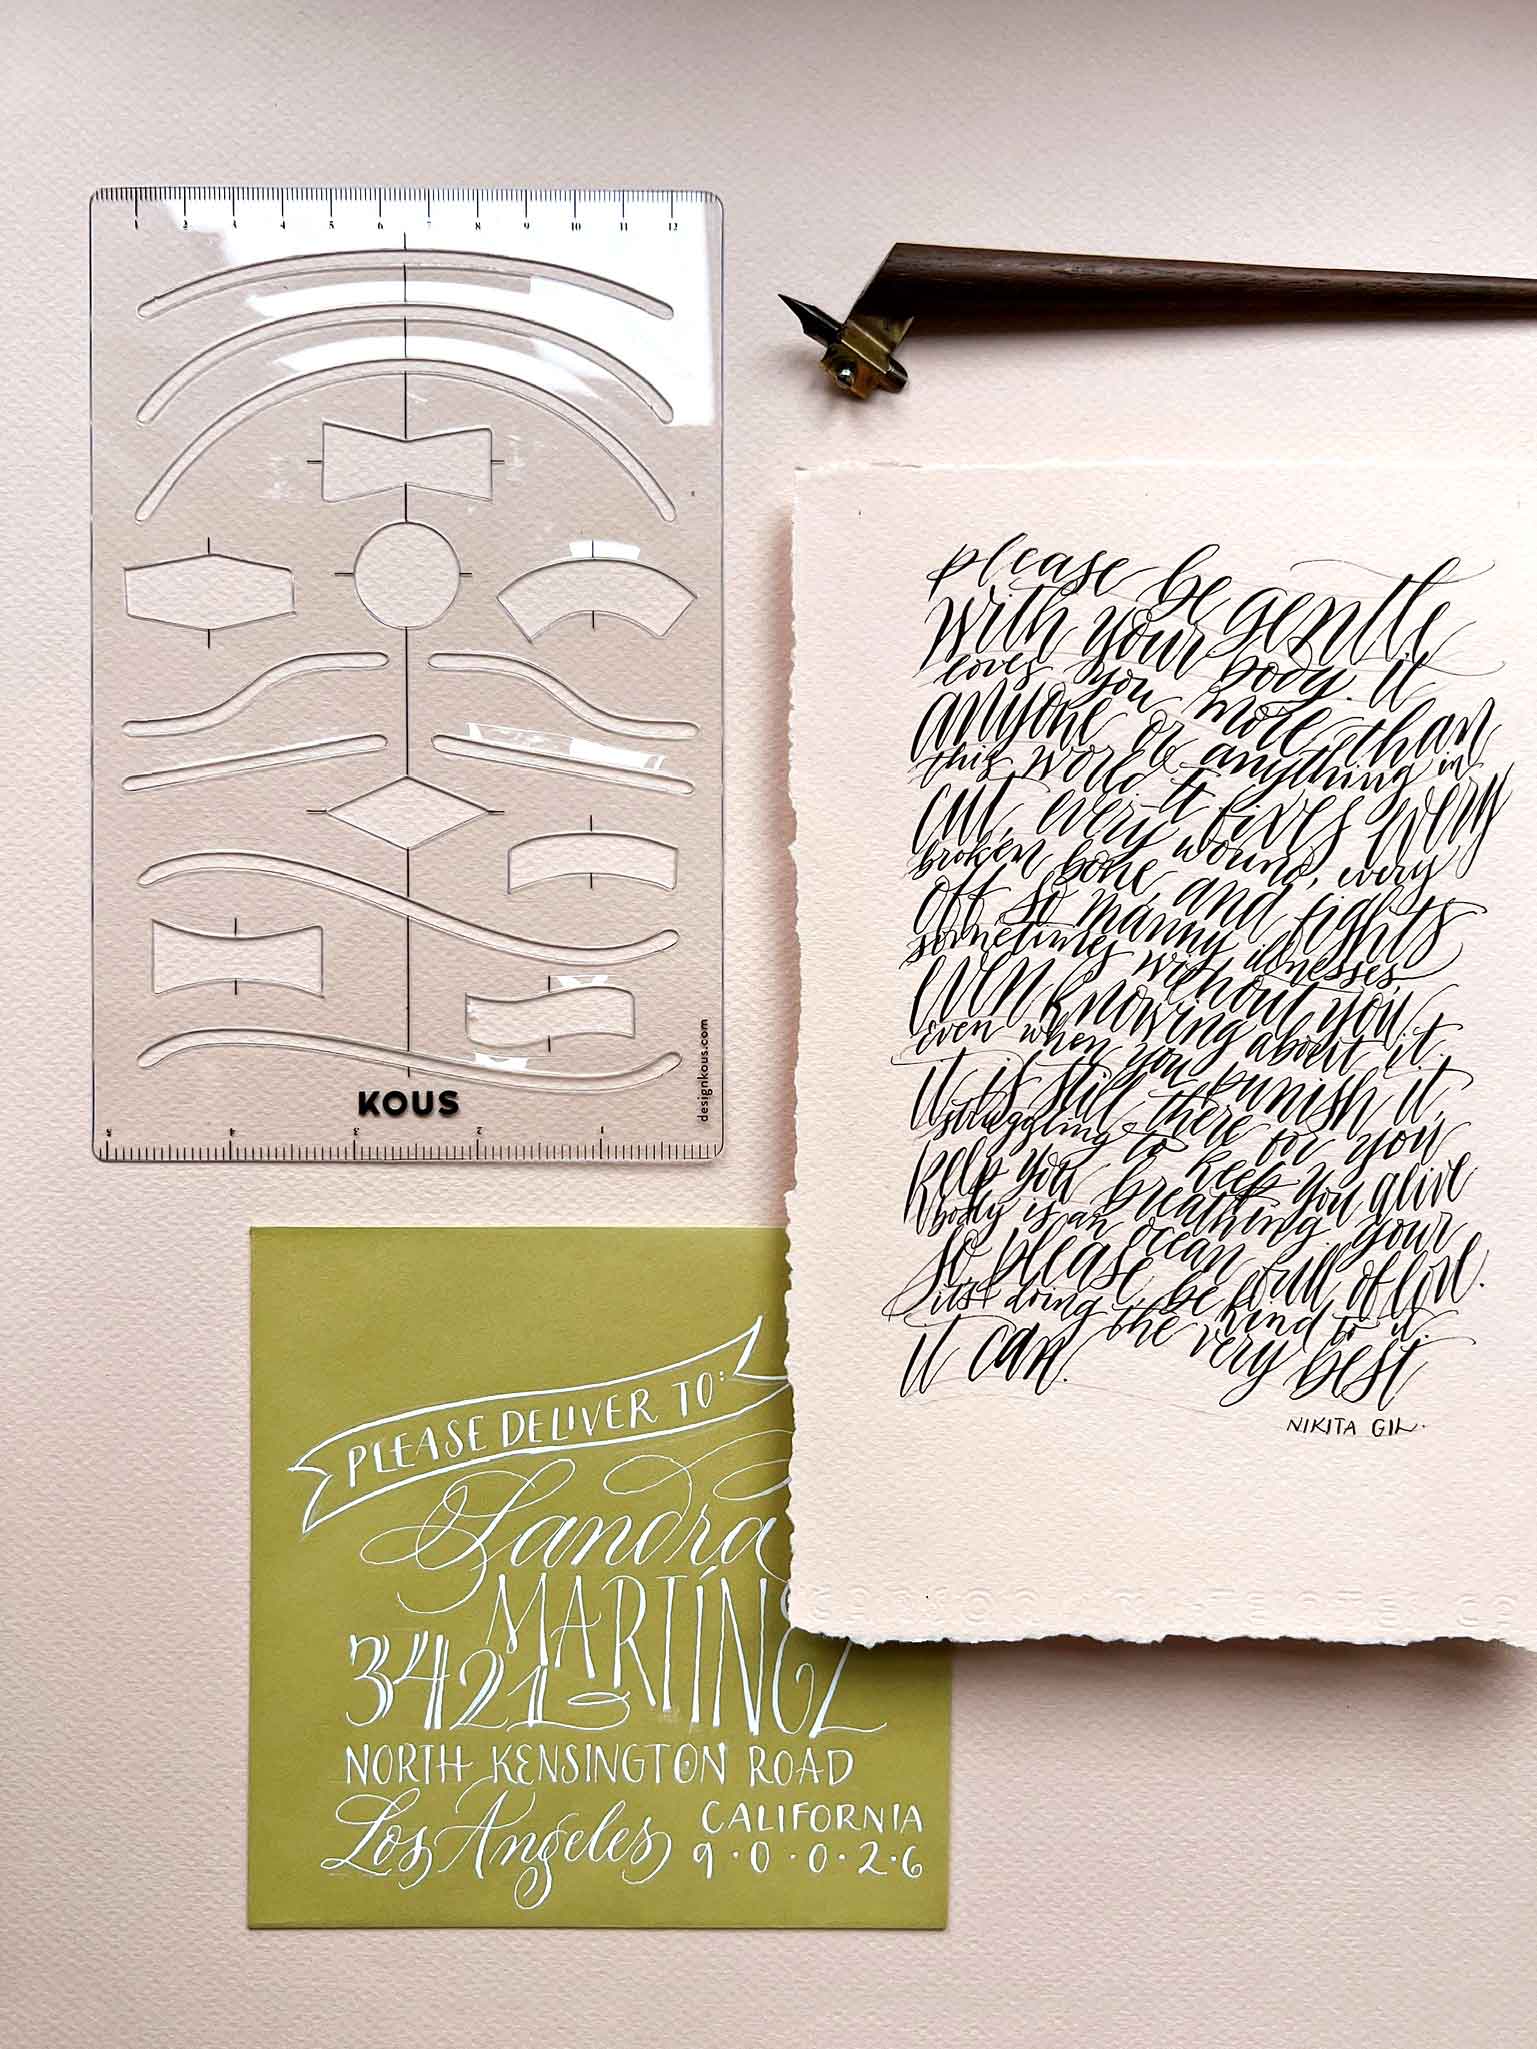 1 2 3 4 5 6 7 8 9 10 11 12
KOUS
designkous.com
5 4 3 2 1
please be gentle
with your body. it
loves you more than
anyone or anything in
this world it fixes every
cut, every wound, every
broken bone, and fights
off so manny illnesses,
sometimes without you
even knowing about it.
even when you punish it
it is still there for you,
struggling to keep you alive
keep you breathing. your
body is an ocean full of love.
so please, be kind to it.
it's just doing the very best
it can.
NIKITA GILL.
PLEASE DELIVER TO:
Sandra
MARTÍNEZ
3421
NORTH KENSINGTON ROAD
Los Angeles CALIFORNIA
9·0·0·2·6